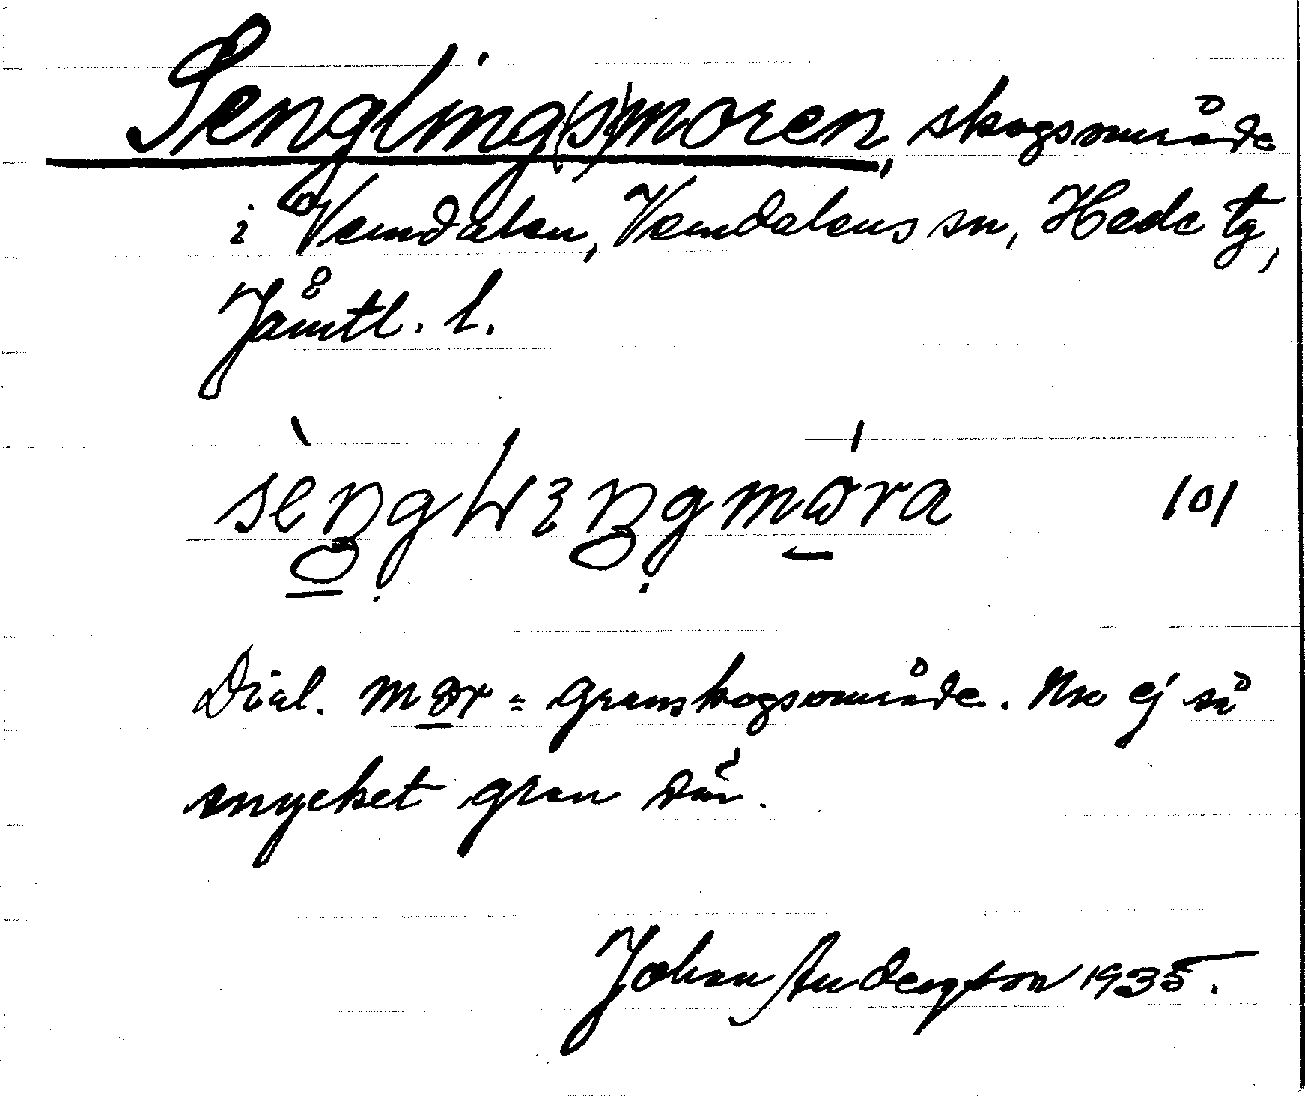 Sengling(s)moren, skogsområde
i Vemdalen, Vemdalens sn, Hede tg,
Jämtl. l.
sèŋglıŋgmóra 101
Dial. mor = granskogsområde. Nu ej så
mycket gran där.
Johan Andersson 1935.